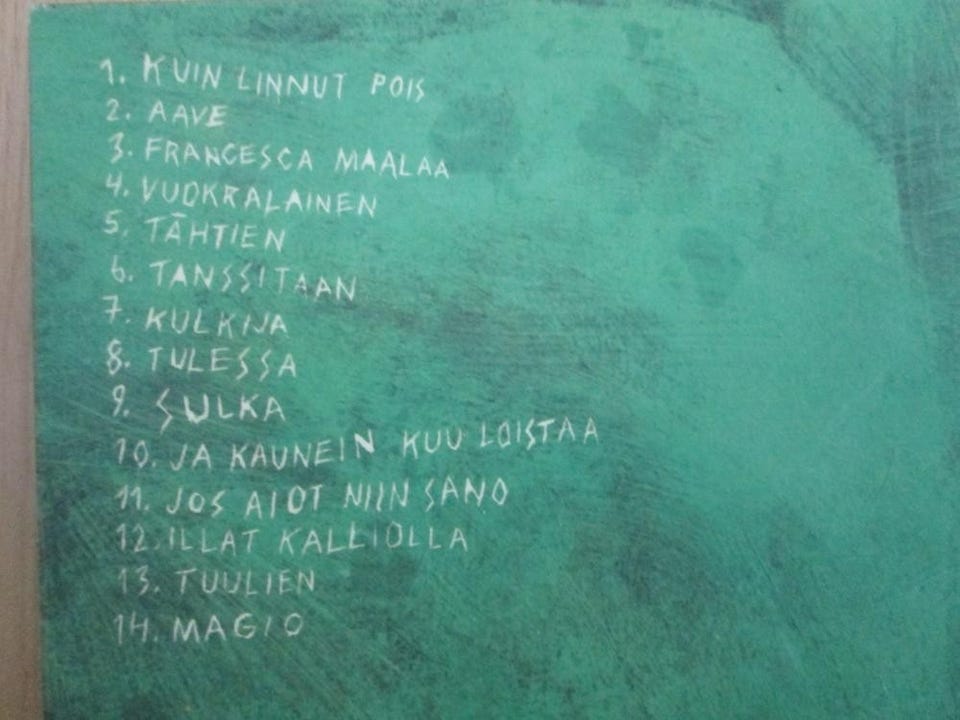 1. KUIN LINNUT POIS
2. AAVE
3. FRANCESCA MAALAA
4. VUOKRALAINEN
5. TÄHTIEN
6. TANSSITAAN
7. KULKIJA
8. TULESSA
9. SULKA
10. JA KAUNEIN KUU LOISTAA
11. JOS AIOT NIIN SANO
12. ILLAT KALLIOLLA
13. TUULIEN
14. MAGIO